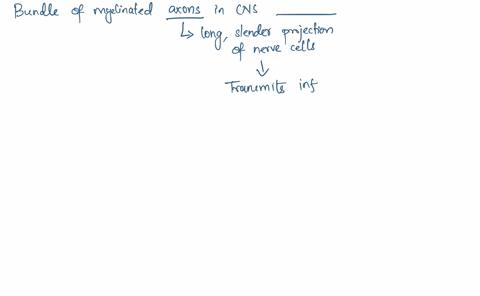 Bundle of myelinated axons in CNS ________
↳ long, slender projection
of nerve cells
↓
Transmits inf